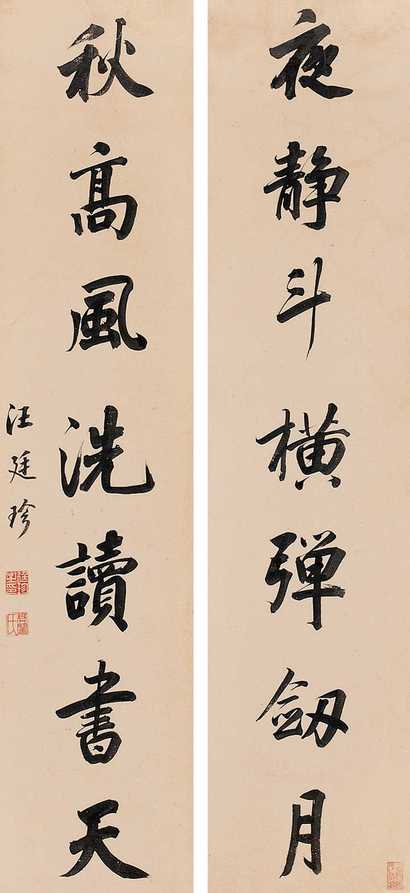 夜静斗横弹劔月
秋高風洗讀書天
汪廷珍